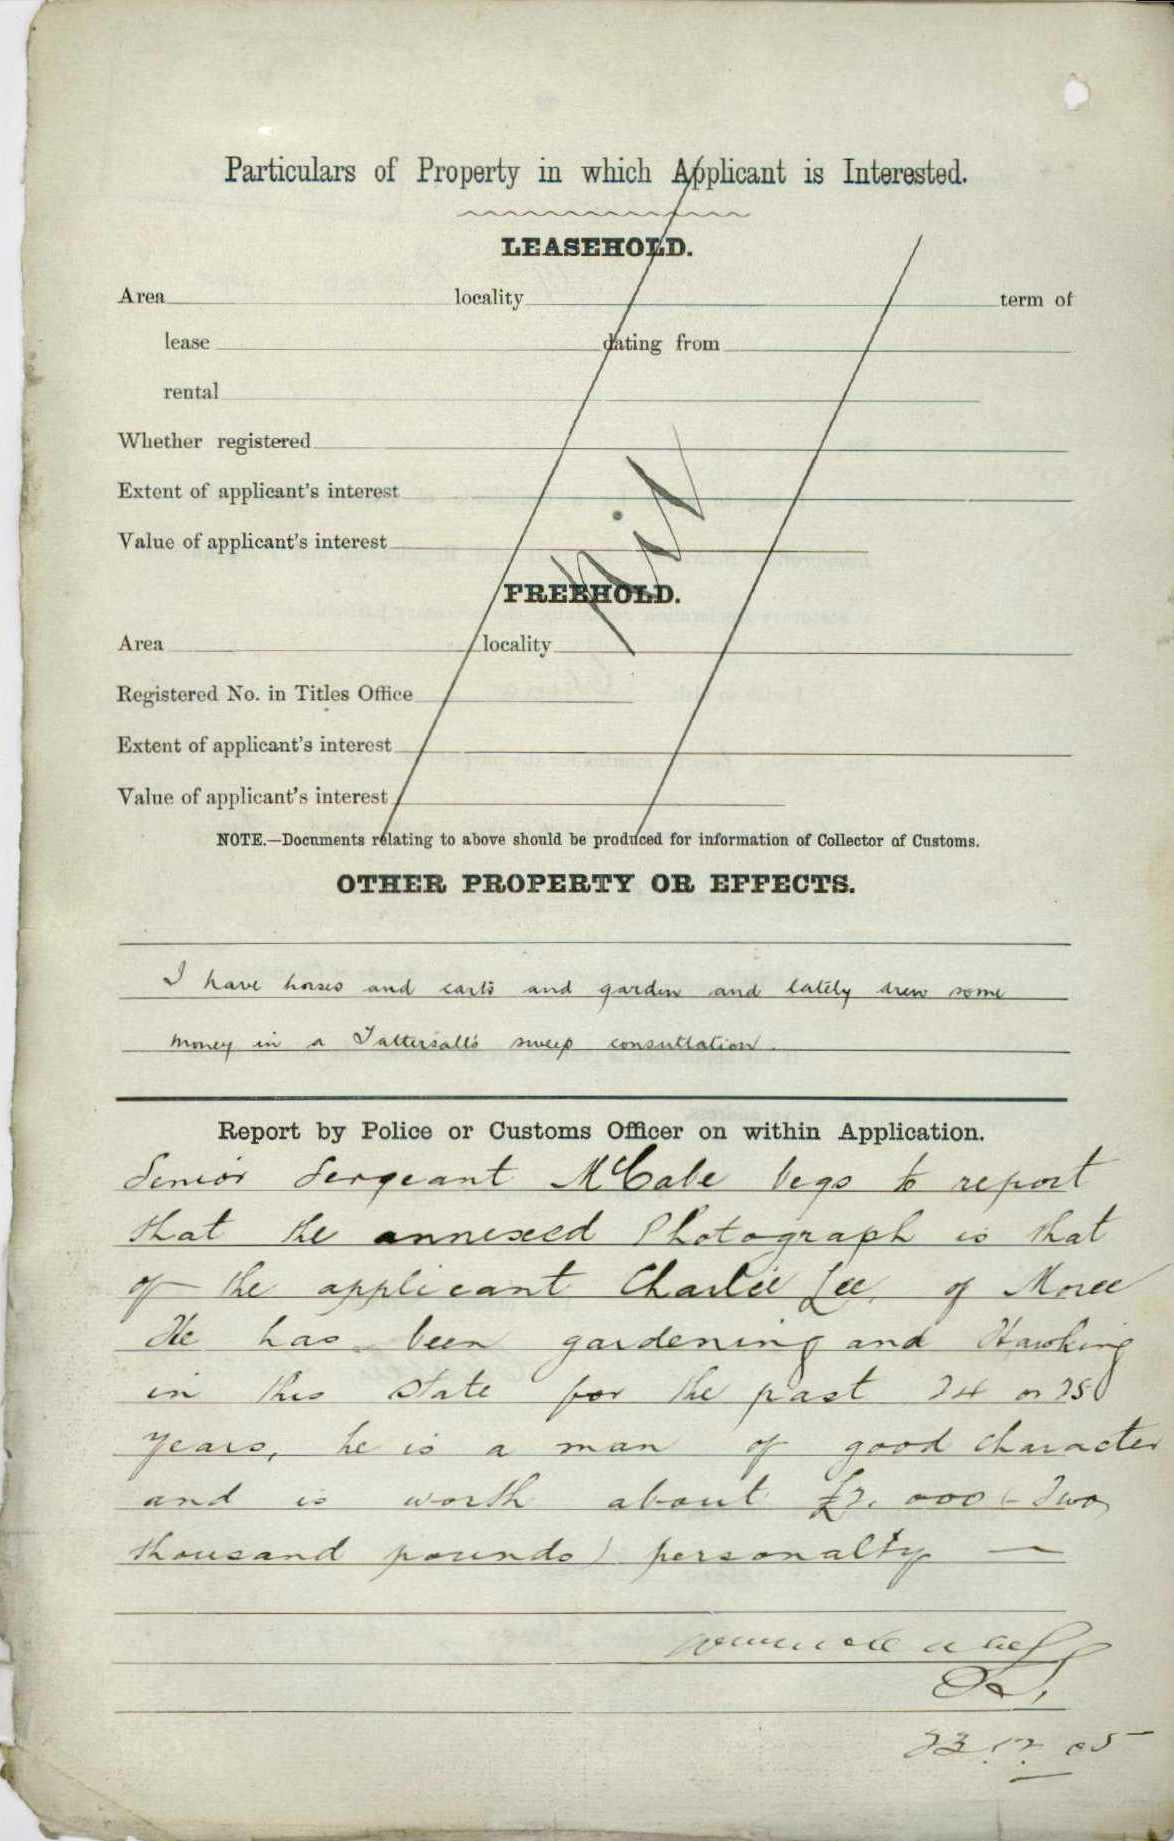 Particulars of Property in which Applicant is Interested.
LEASEHOLD.
Area locality term of
lease dating from
rental
Whether registered
Extent of applicant's interest
Value of applicant's interest
Nil
FREEHOLD.
Area locality
Registered No. in Titles Office
Extent of applicant's interest
Value of applicant's interest
NOTE.—Documents relating to above should be produced for information of Collector of Customs.
OTHER PROPERTY OR EFFECTS.
I have horses and carts and garden and lately drew some
money in a Tattersall's sweep consultation.
Report by Police or Customs Officer on within Application.
Senior Sergeant McCabe begs to report
that the annexed Photograph is that
of the applicant Charlie Lee, of Moree
He has been gardening and Hawking
in this State for the past 24 or 25
years, he is a man of good character
and is worth about £2,000 (Two
thousand pounds) personalty —
23.12.05